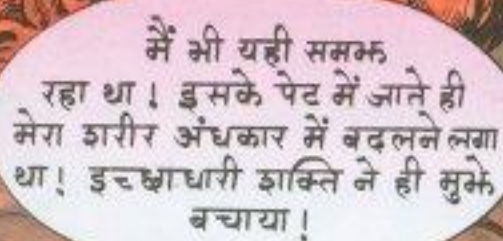 मैं भी यही समझ
रहा था! इसके पेट में जाते ही
मेरा शरीर अंधकार में बदलने लगा
था! इच्छाधारी शक्ति ने ही मुझे
बचाया!